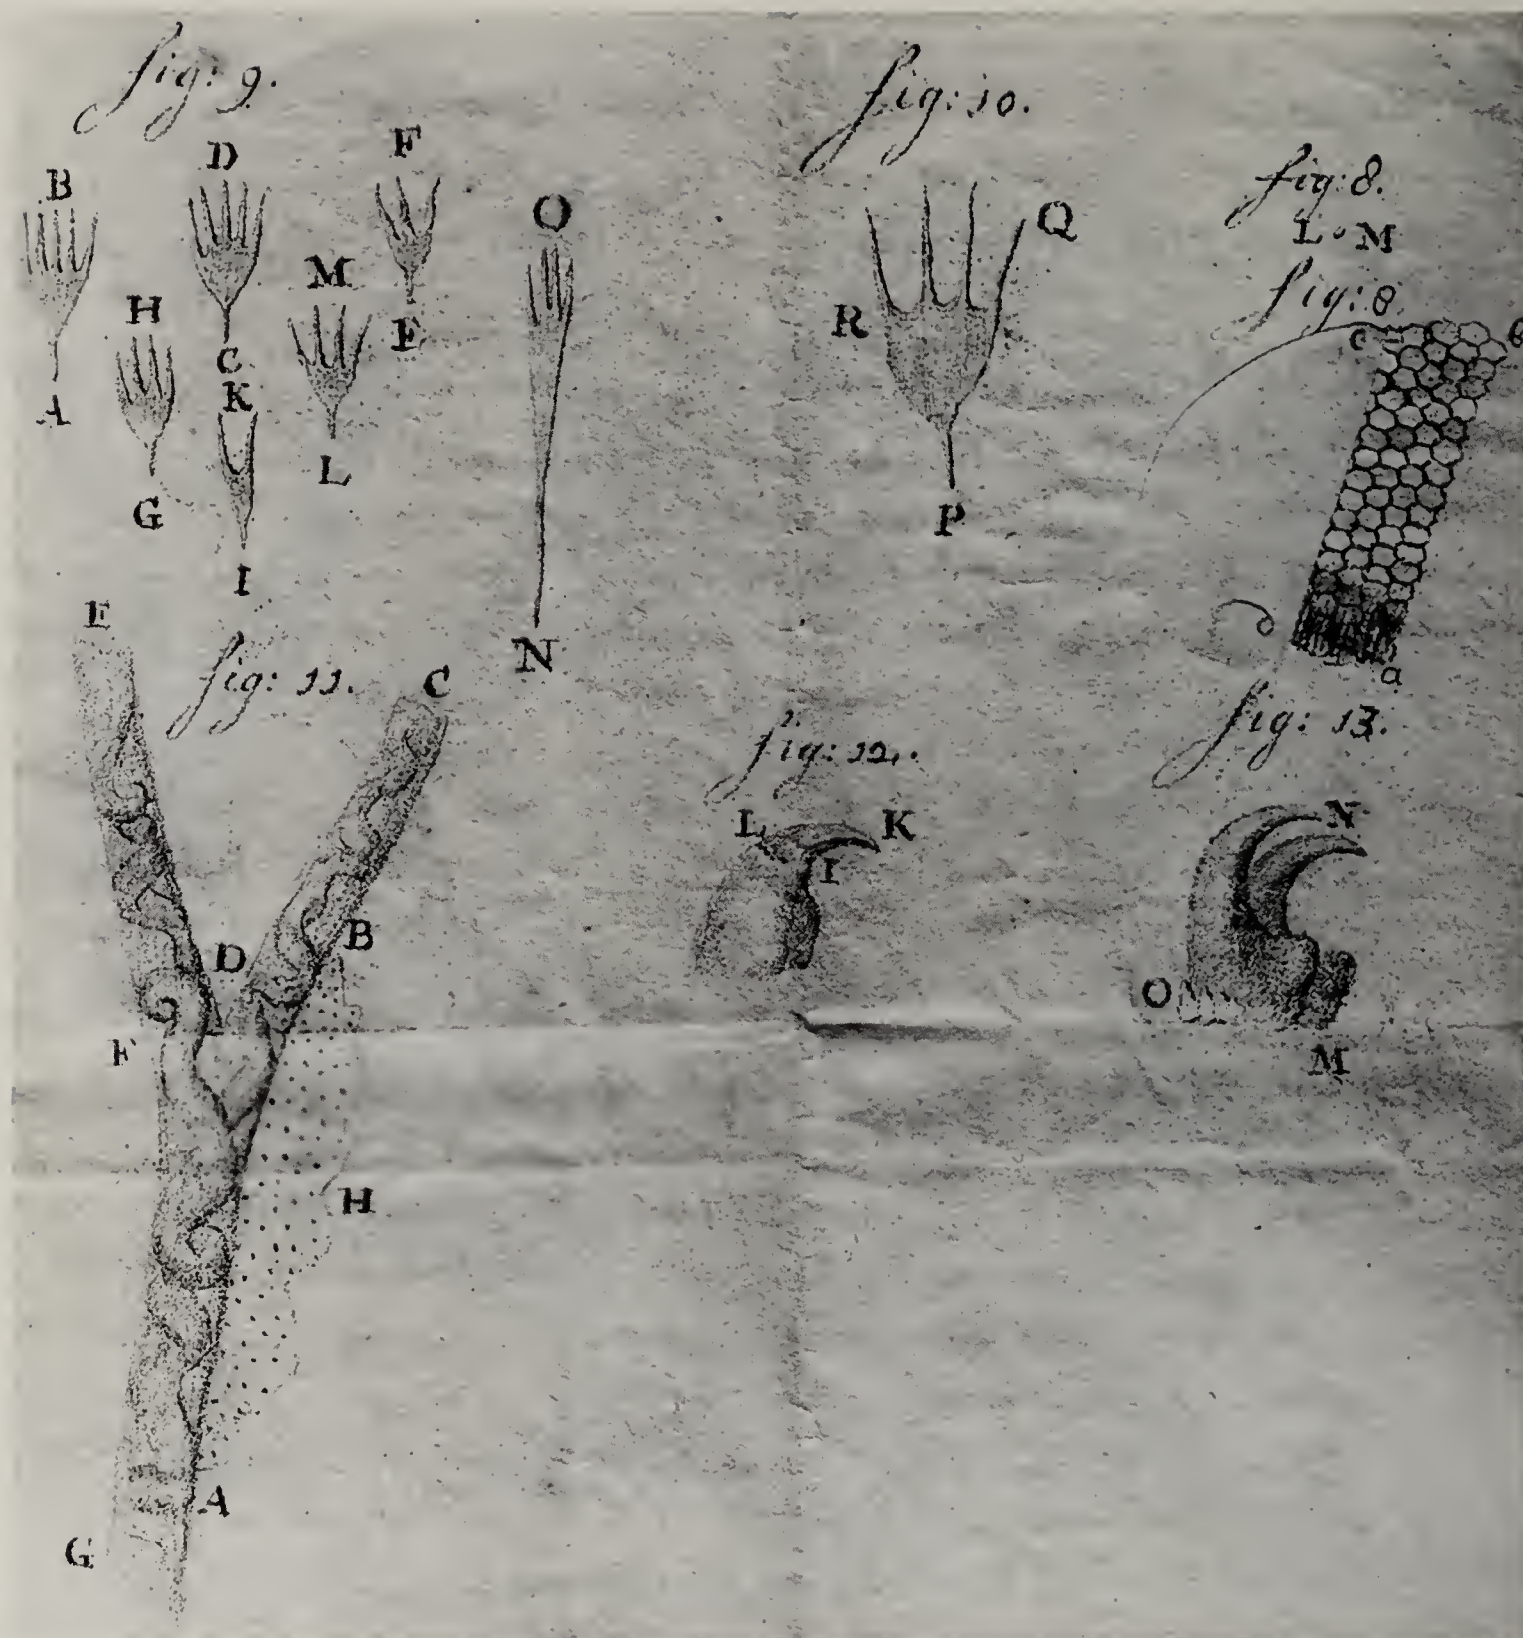 fig: 9.
B
D
F
A
H
C
M
E
G
K
I
L
O
N
fig: 10.
Q
R
P
fig: 8.
L M
fig: 8
c
a
fig: 11.
E
C
D
B
F
H
A
G
fig: 12.
L
K
I
fig: 13.
N
O
M